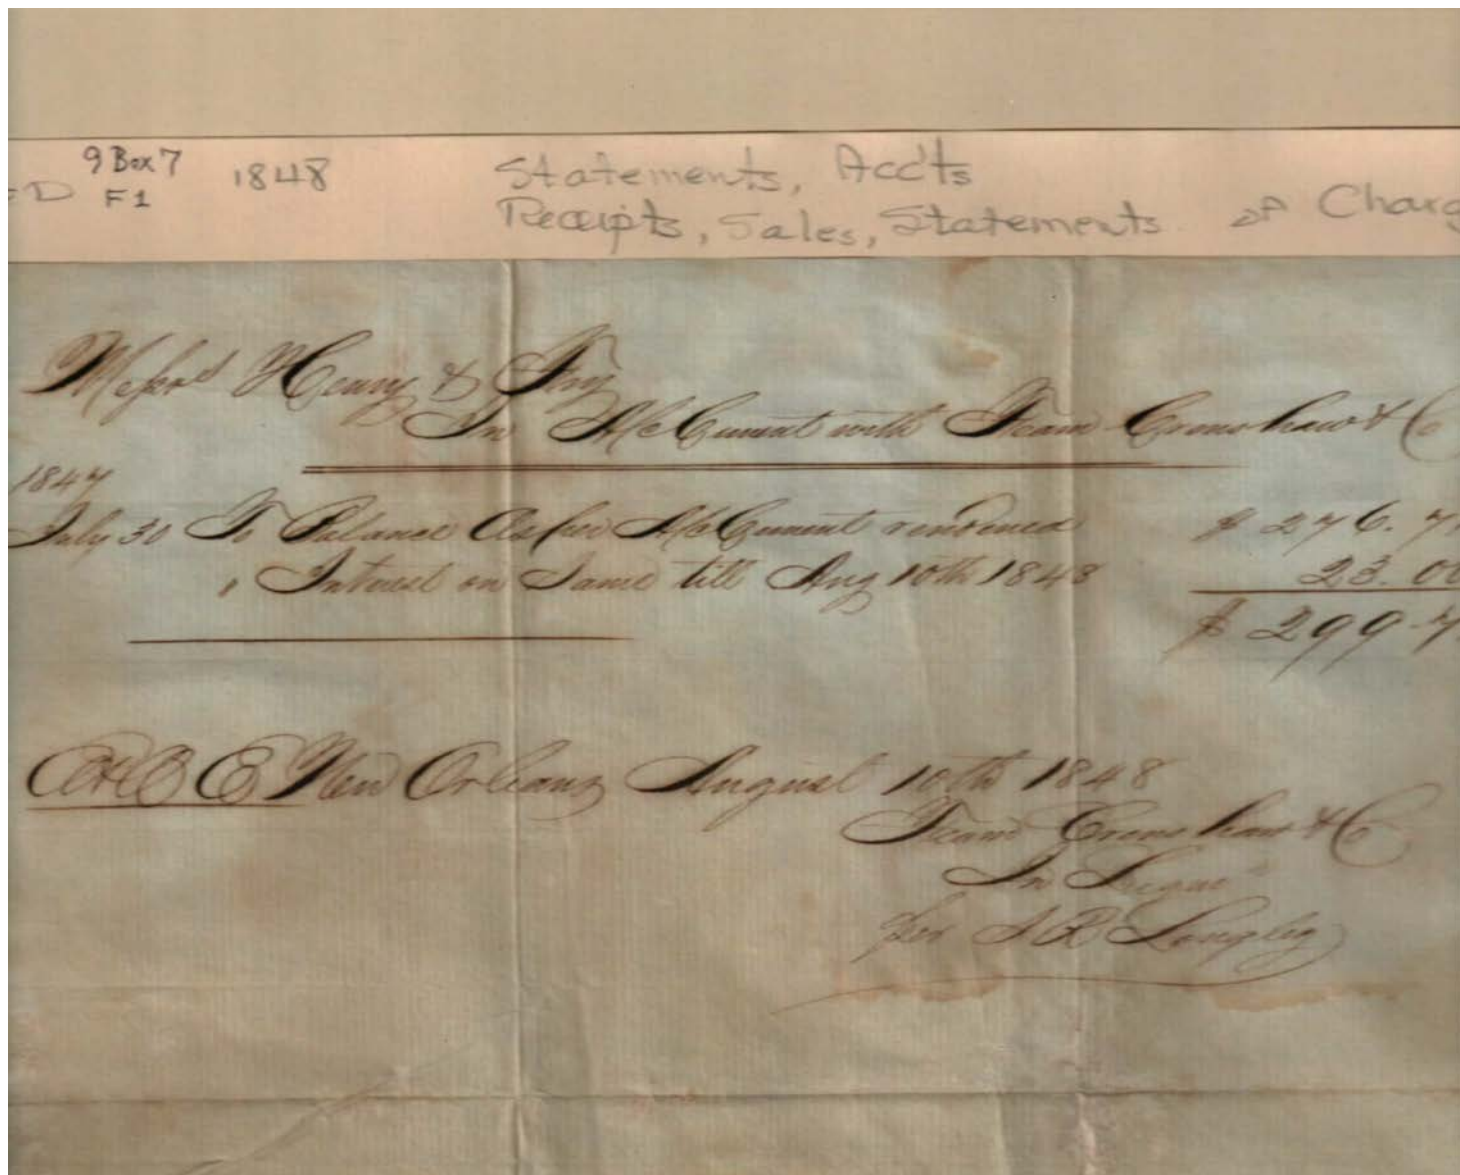 9 Box 7 1848 Statements, Accts
D F1 Receipts, Sales, Statements Charg
Messrs Henry &
In A/c Current with Crenshaw & Co
1847
July 30 To Balance as per A/c Current rendered $ 276. 7
" Interest on Same till Aug 10th 1848 23. 00
$ 299. 7
E & O E New Orleans August 10th 1848
Crenshaw & Co
In Liqn
per Langley